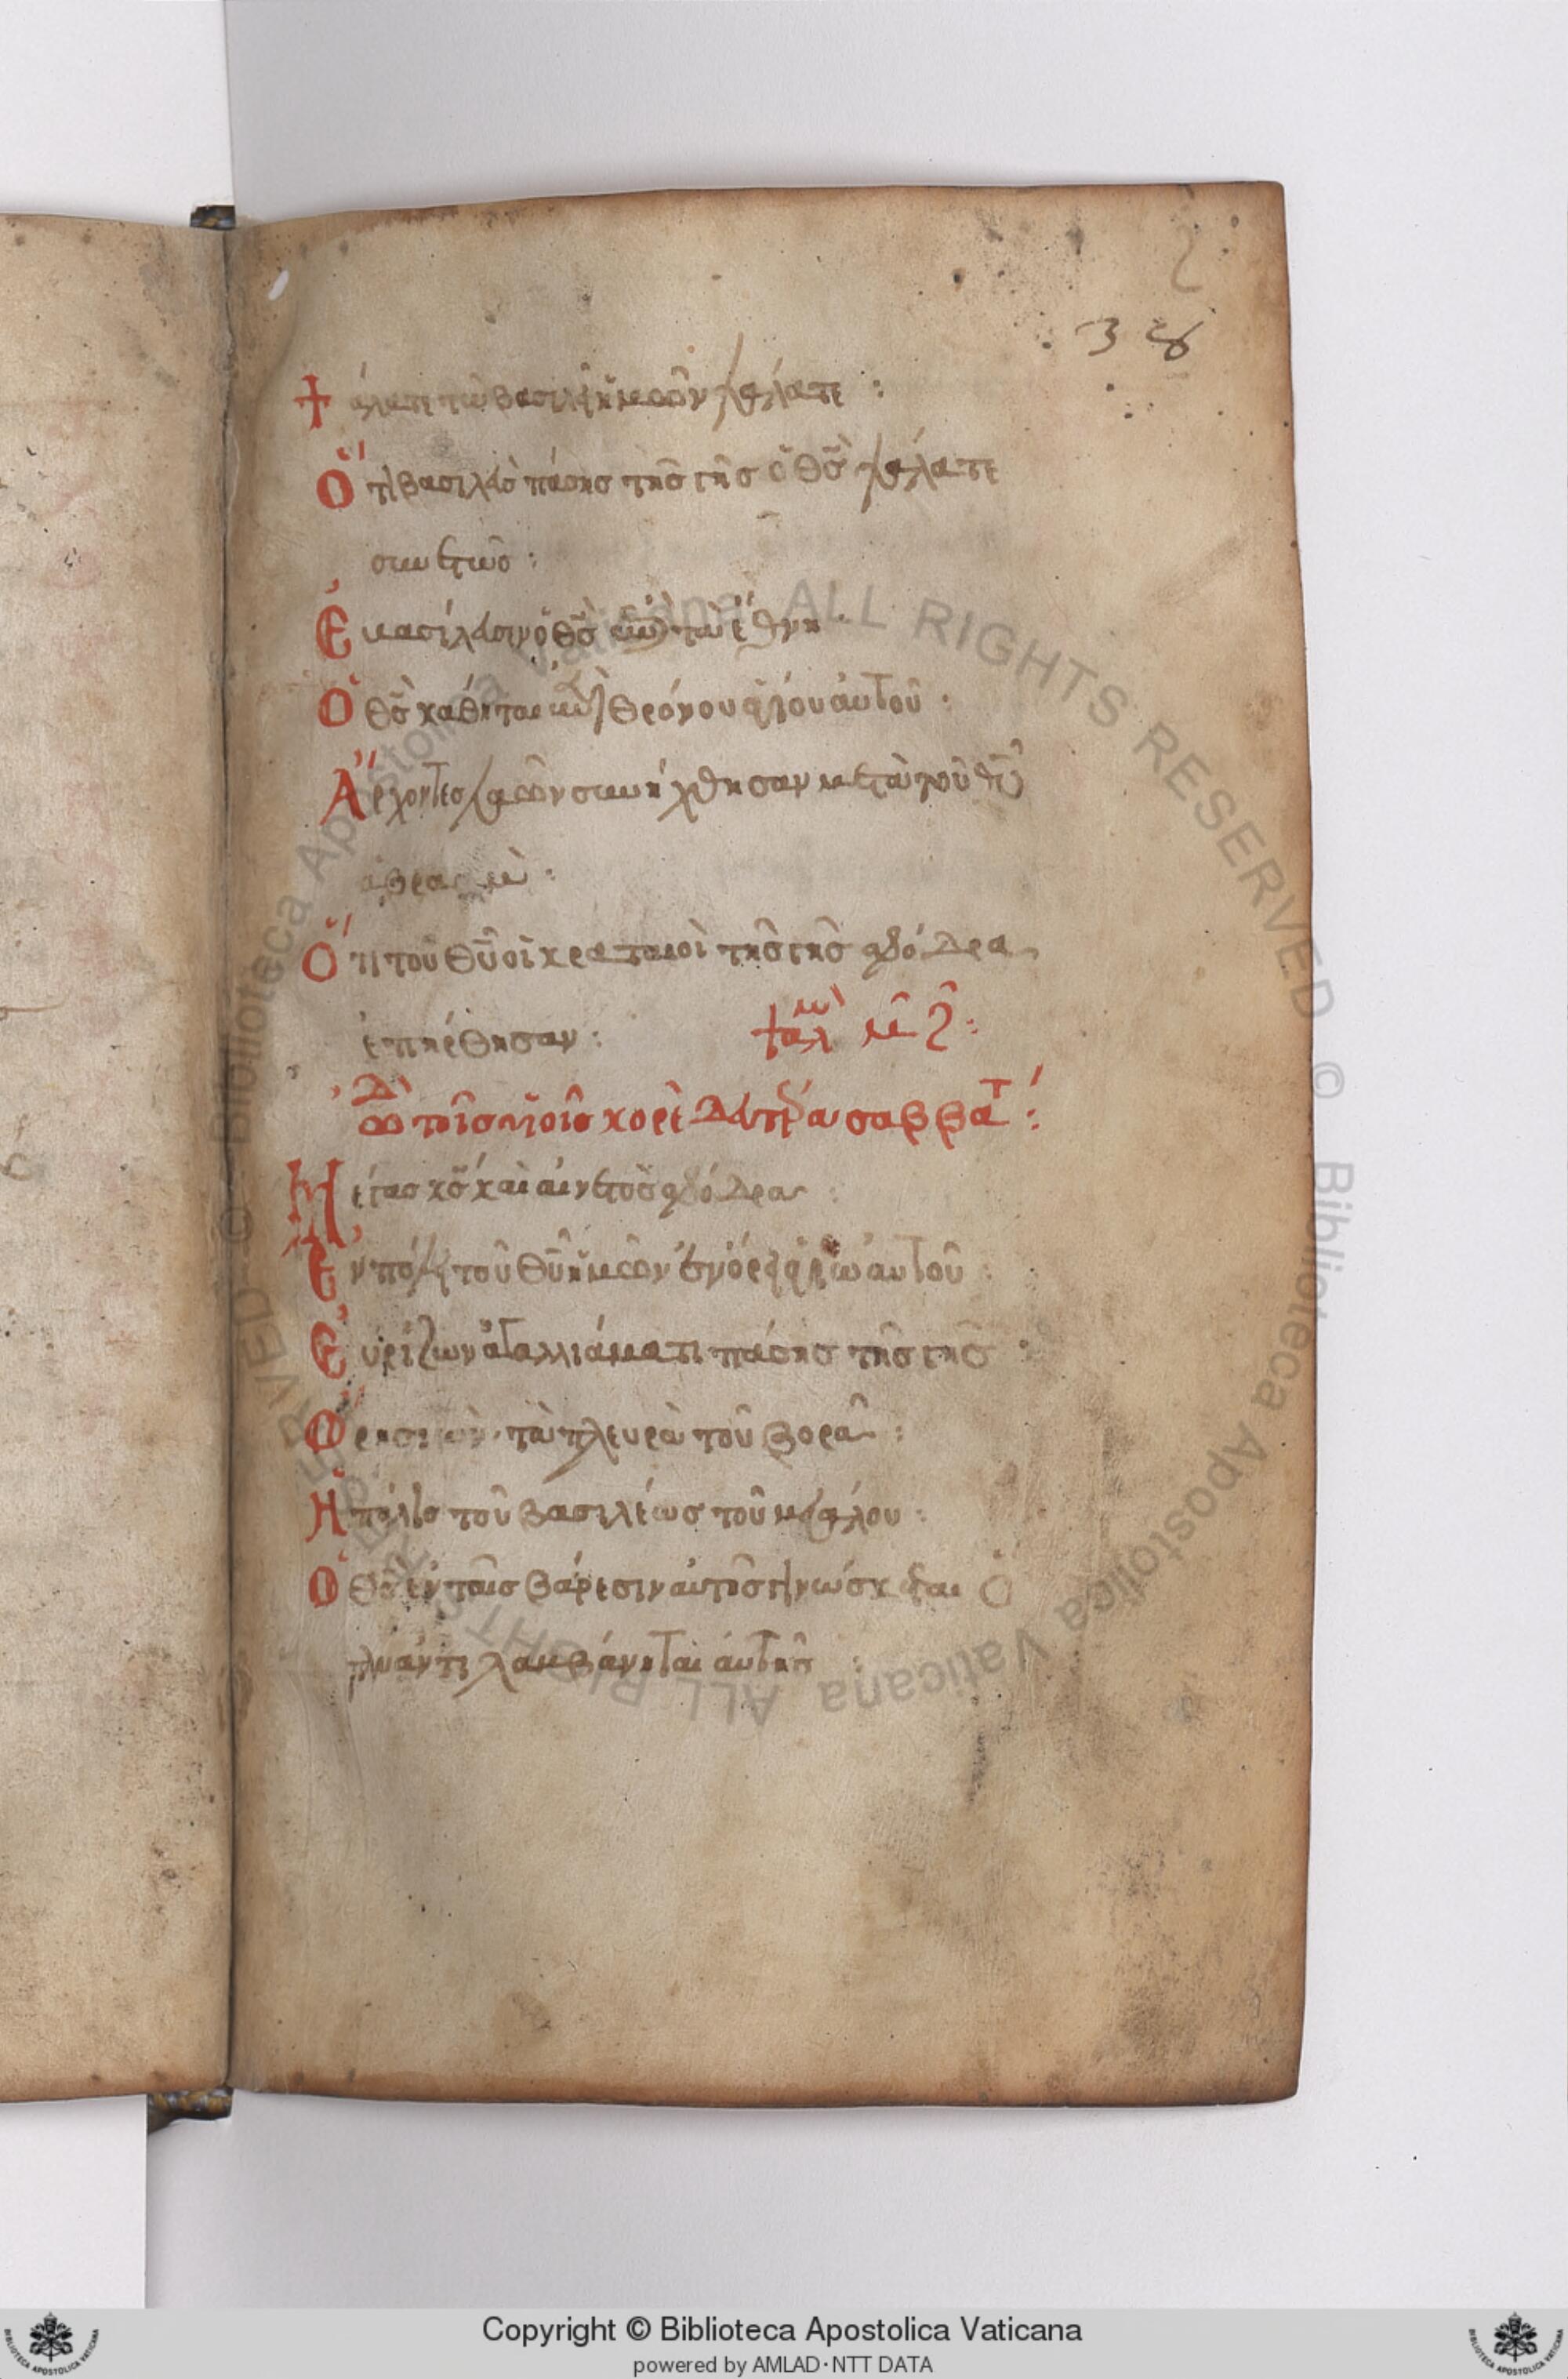 38
Ψάλατε τῶ βασιλεῖ ἡμῶν ψάλατε :
Ὅτι βασιλεὺσ πάσησ τῆσ γῆσ ὁ θσ ψάλατε
συνετῶσ :
Ἐβασίλευσεν ὁ θσ ἐπὶ τὰ ἔθνη
Ὁ θσ κάθηται ἐπὶ θρόνου ἁγίου αὐτοῦ :
Ἄρχοντεσ λαῶν συνήχθησαν μετὰ τοῦ θυ
ἀβραάμ :
Ὅτι τοῦ θυ οἱ κραταιοὶ τῆσ γῆσ σφόδρα
ἐπήρθησαν : ψαλμ μζ :
τοῖσ υἱοῖσ κορὲ δευτέρα σαββάτ :
Μέγασ κσ καὶ αἰνετὸσ σφόδρα :
Ἐν πόλει τοῦ θυ ἡμῶν ἐν ὄρει ἁγίω αὐτοῦ :
Εὐρίζων ἀγαλλιάματι πάσησ τῆσ γῆσ :
Ὄρη σιών· τὰ πλευρὰ τοῦ βορᾶ :
Ἡ πόλισ τοῦ βασιλέωσ τοῦ μεγάλου :
Ὁ θσ ἐν ταῖσ βάρεσιν αὐτῆσ γινώσκεται ὅ
ταν ἀντιλαμβάνηται αὐτῆσ :
Copyright © Biblioteca Apostolica Vaticana
powered by AMLAD·NTT DATA